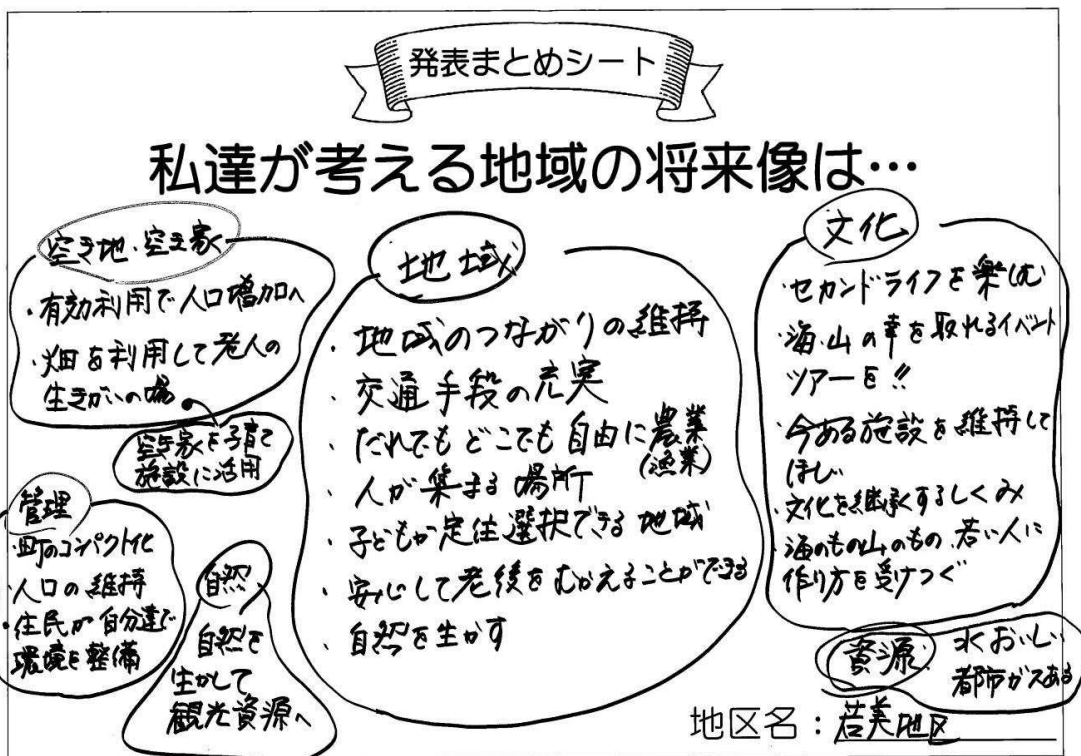 発表まとめシート
私達が考える地域の将来像は…
空き地・空き家
・有効利用で人口増加へ
・畑を利用して老人の
生きがいの場
空き家を子育て
施設に活用
管理
・町のコンパクト化
・人口の維持
・住民が自分達で
環境を整備
自然
自然を
生かして
観光資源へ
地域
・地域のつながりの維持
・交通手段の充実
・だれでもどこでも自由に農業
(漁業)
・人が集まる場所
・子どもが定住選択できる地域
・安心して老後をむかえることができる
・自然を生かす
文化
・セカンドライフを楽しむ
・海・山の幸を取れるイベント
ツアーを!!
・今ある施設を維持して
ほしい
・文化を継承するしくみ
・海のもの山のもの、若い人に
作り方を受けつぐ
資源
水おいしい
都市ガスある
地区名：若美地区